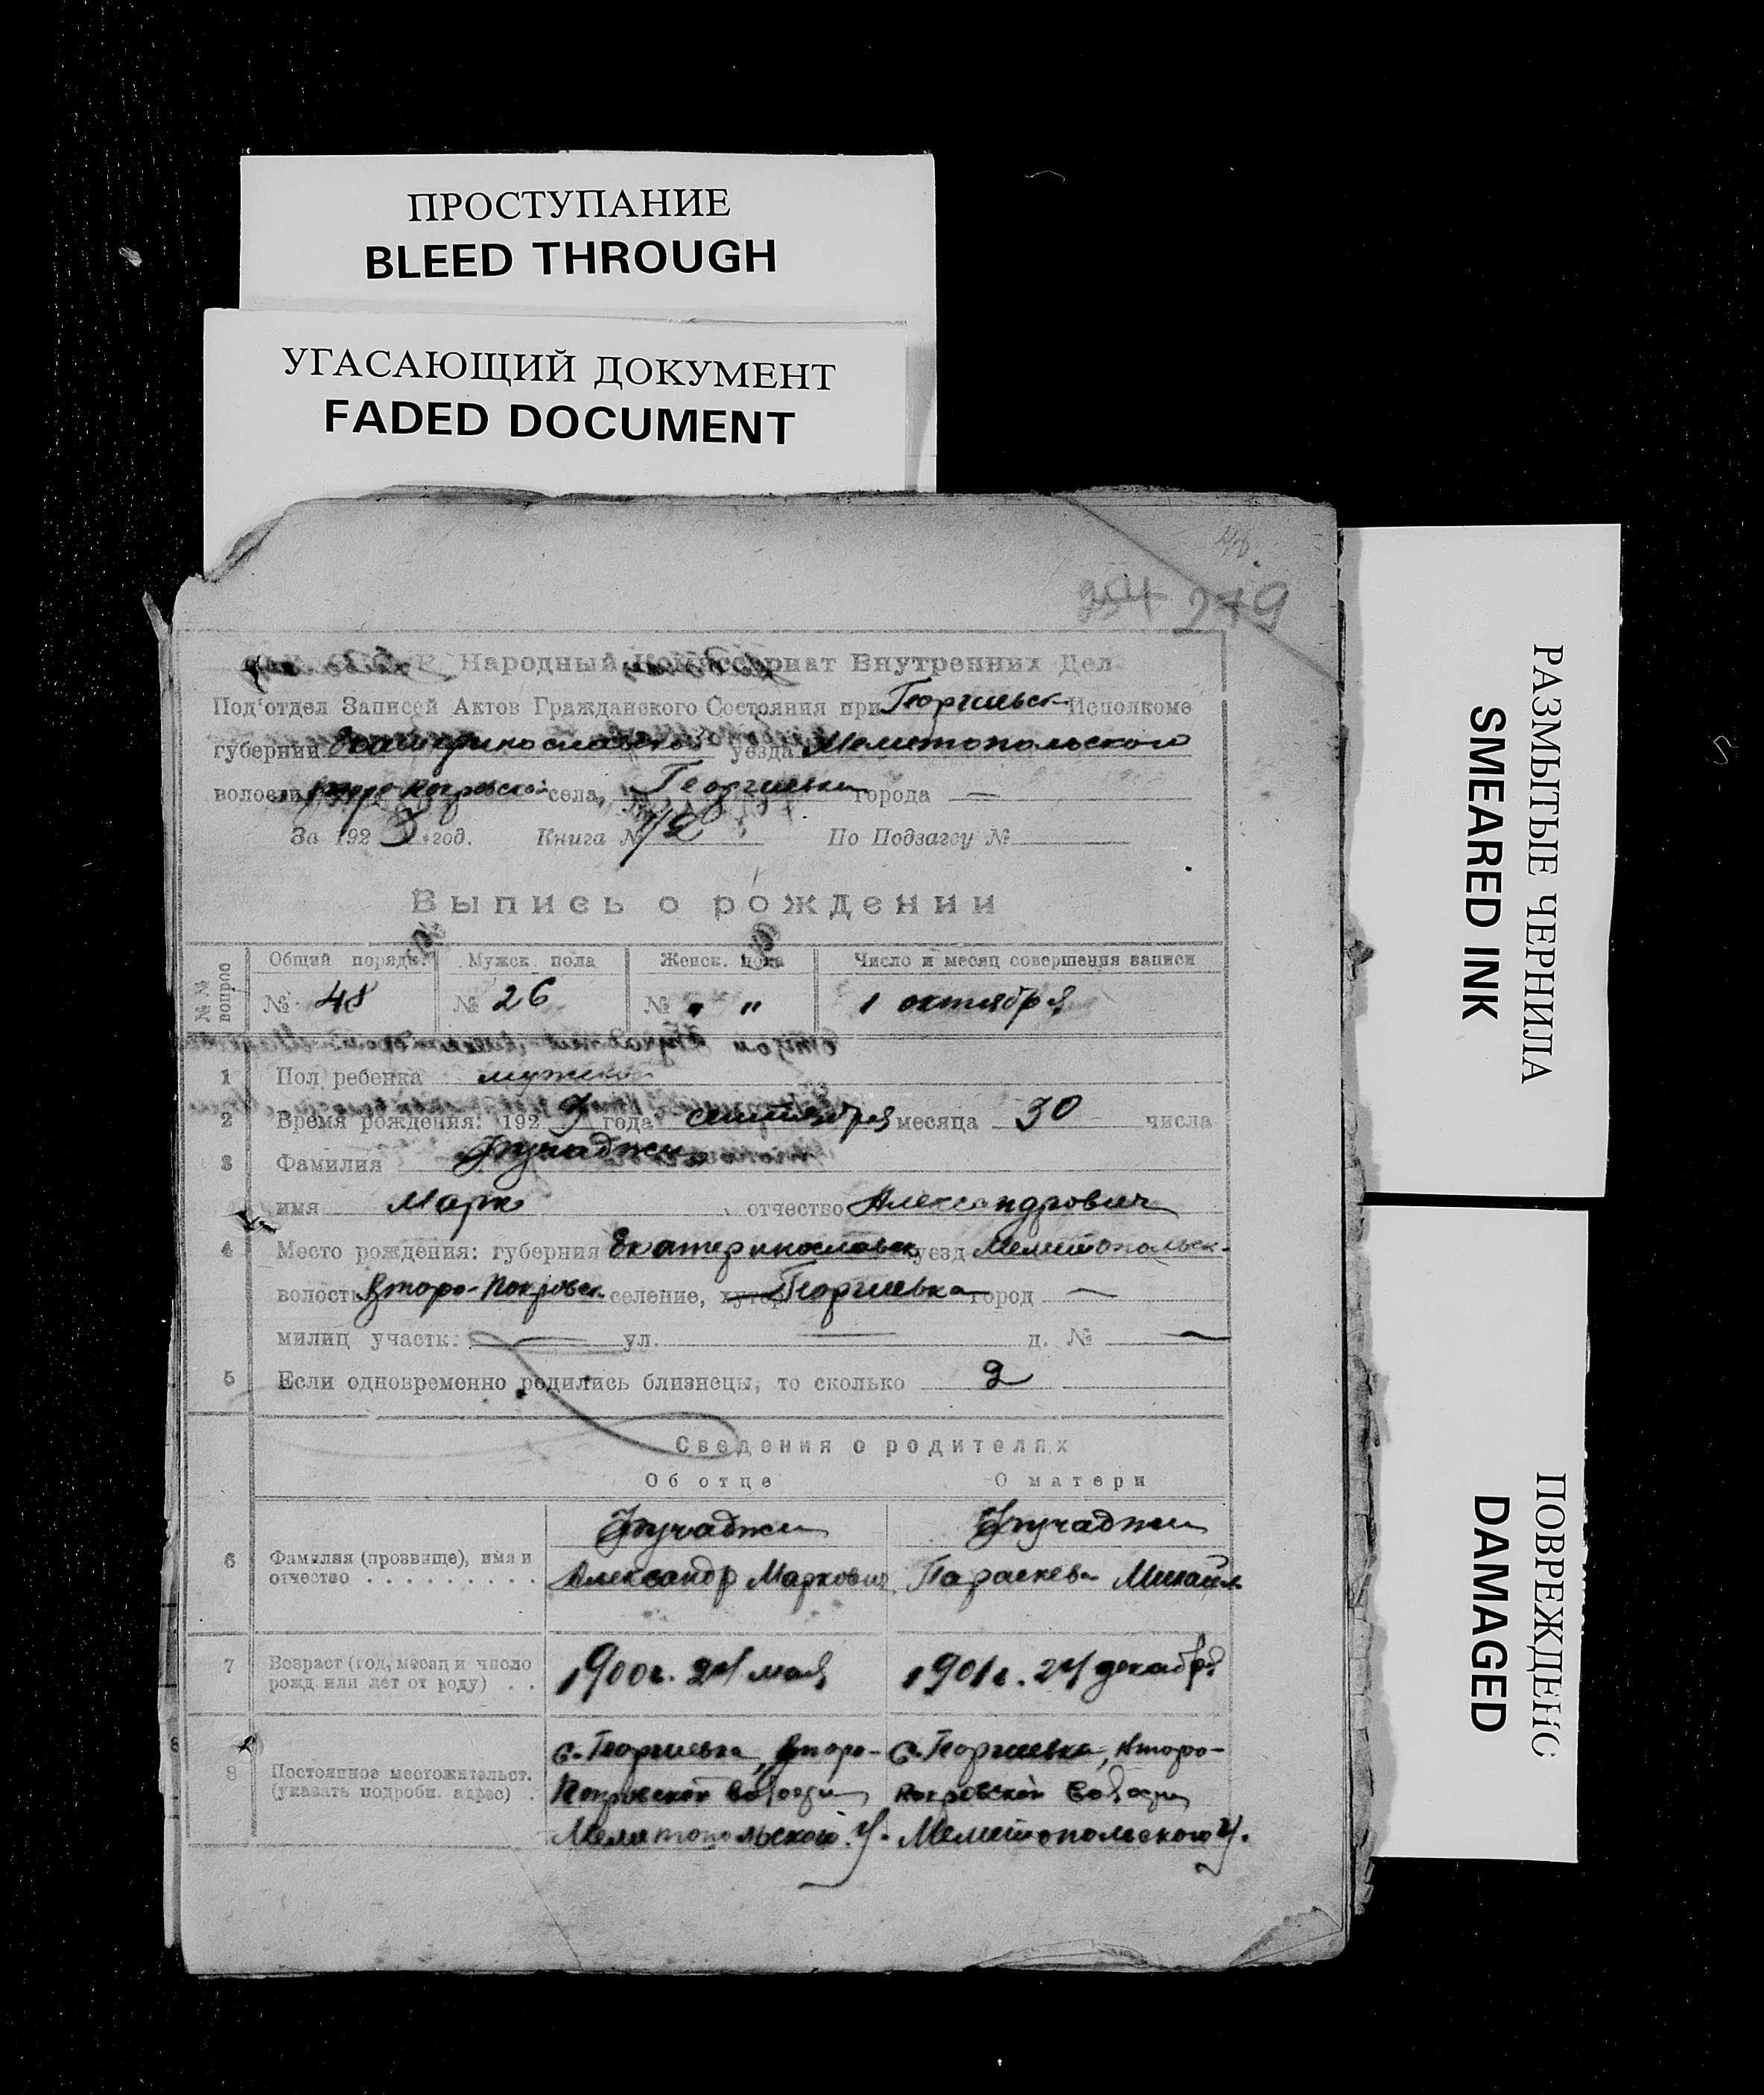 ПРОСТУПАНИЕ
BLEED THROUGH
УГАСАЮЩИЙ ДОКУМЕНТ
FADED DOCUMENT
РАЗМЫТЫЕ ЧЕРНИЛА
SMEARED INK
ПОВРЕЖДЕНС
DAMAGED
279
Народный Комиссариат Внутренних Дел
Под'отдел Записей Актов Гражданского Состояния при Георгиевск Исполкоме
губернии Екатеринославской уезда Мелитопольского
волости Второ-Покровской села, Георгиевки города —
За 1923 год. Книга № По Подзагсу №
Выпись о рождении
№№ вопро Общий порядк. Мужск. пола Женск. пола Число и месяц совершения записи
№ 48 № 26 № " " 1 октября
1 Пол ребенка мужской
2 Время рождения: 1923 года сентября месяца 30 числа
3 Фамилия
имя Марк отчество Александрович
4 Место рождения: губерния Екатеринославск уезд Мелитопольск.
волость Второ-Покровск. селение, хутор Георгиевка город —
милиц участк. ул. д. № —
5 Если одновременно родились близнецы, то сколько 2
Сведения о родителях
Об отце О матери
6 Фамилия (прозвище), имя и
отчество . . . . . . . . . Александр Маркович Параскева Михайл.
7 Возраст (год, месяц и число
рожд или лет от роду) . . 1900 г. 24 мая 1901 г. 24 декабря
с. Георгиевка, Второ- с. Георгиевка, Второ-
8 Постоянное местожительст.
(указать подробн. адрес) . Покровской волости Покровской волости
Мелитопольского У. Мелитопольского У.